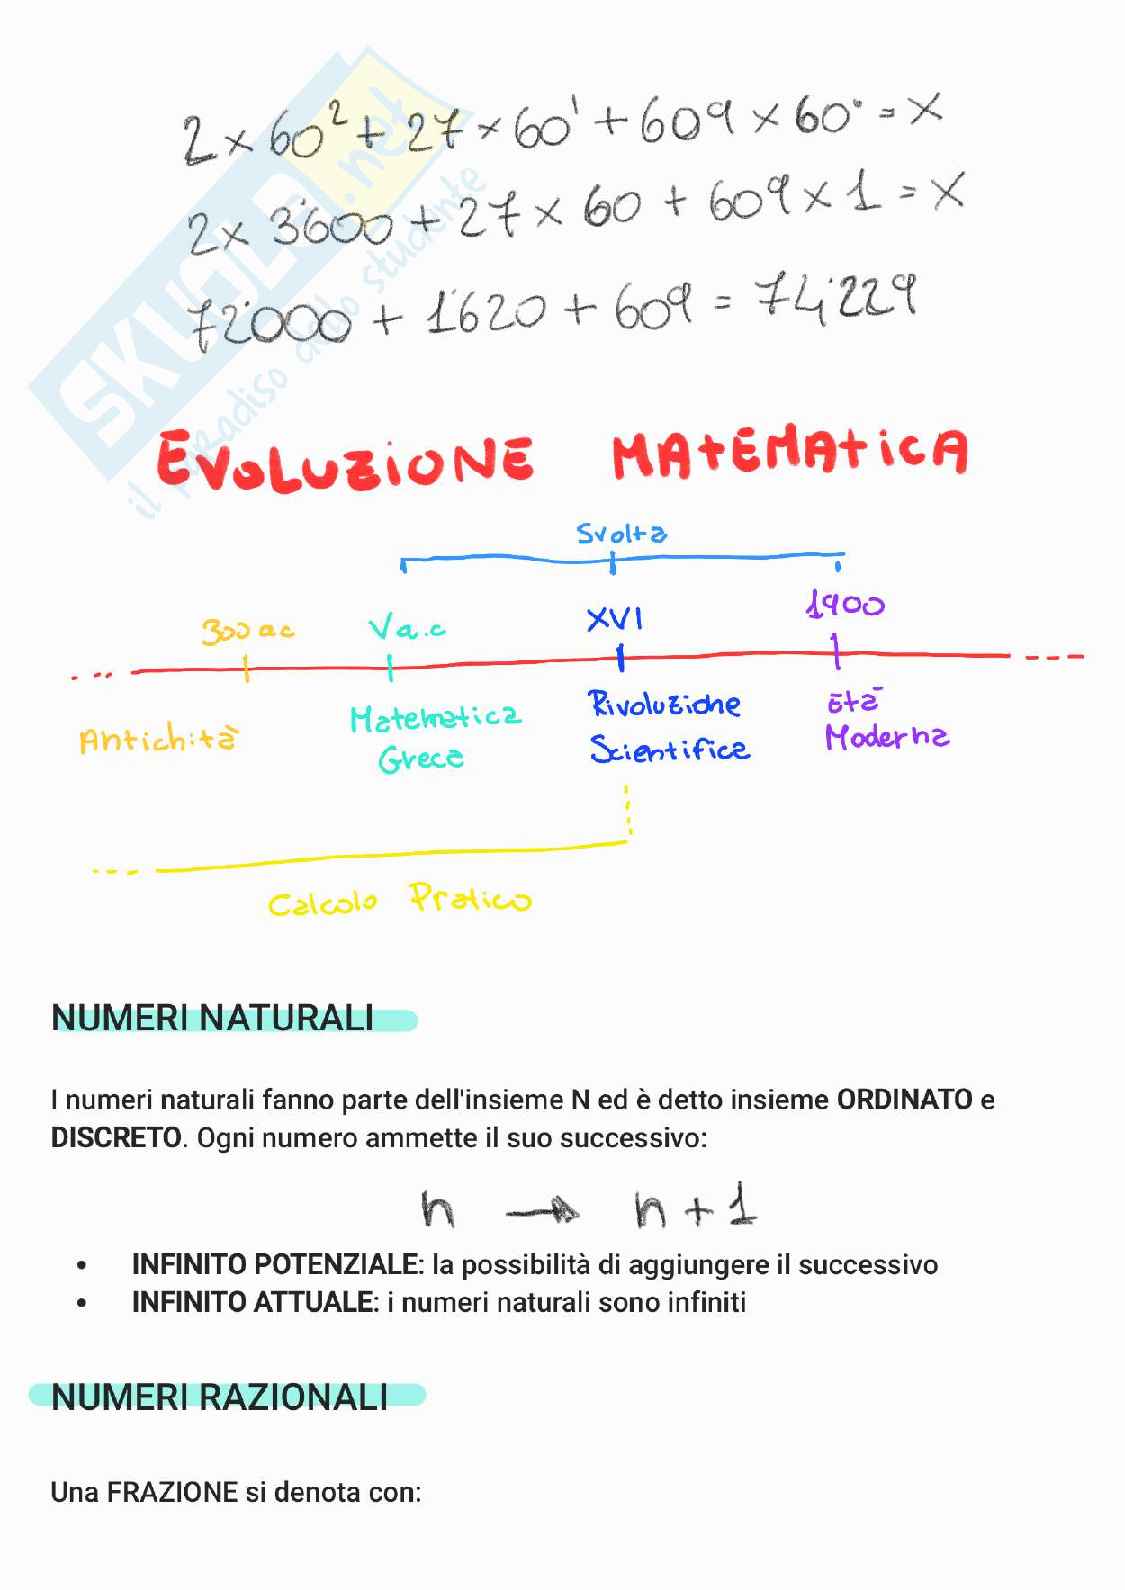 2 x 60² + 27 x 60¹ + 609 x 60° = x
2 x 3'600 + 27 x 60 + 609 x 1 = x
72'000 + 1'620 + 609 = 74'229
SKUOLA.net
il paradiso dello studente
EVOLUZIONE MATEMATICA
Svolta
300 ac V a.c XVI 1900
Antichità Matematica Greca Rivoluzione Scientifica età Moderna
Calcolo Pratico
NUMERI NATURALI
I numeri naturali fanno parte dell'insieme N ed è detto insieme ORDINATO e
DISCRETO. Ogni numero ammette il suo successivo:
n → n + 1
• INFINITO POTENZIALE: la possibilità di aggiungere il successivo
• INFINITO ATTUALE: i numeri naturali sono infiniti
NUMERI RAZIONALI
Una FRAZIONE si denota con: